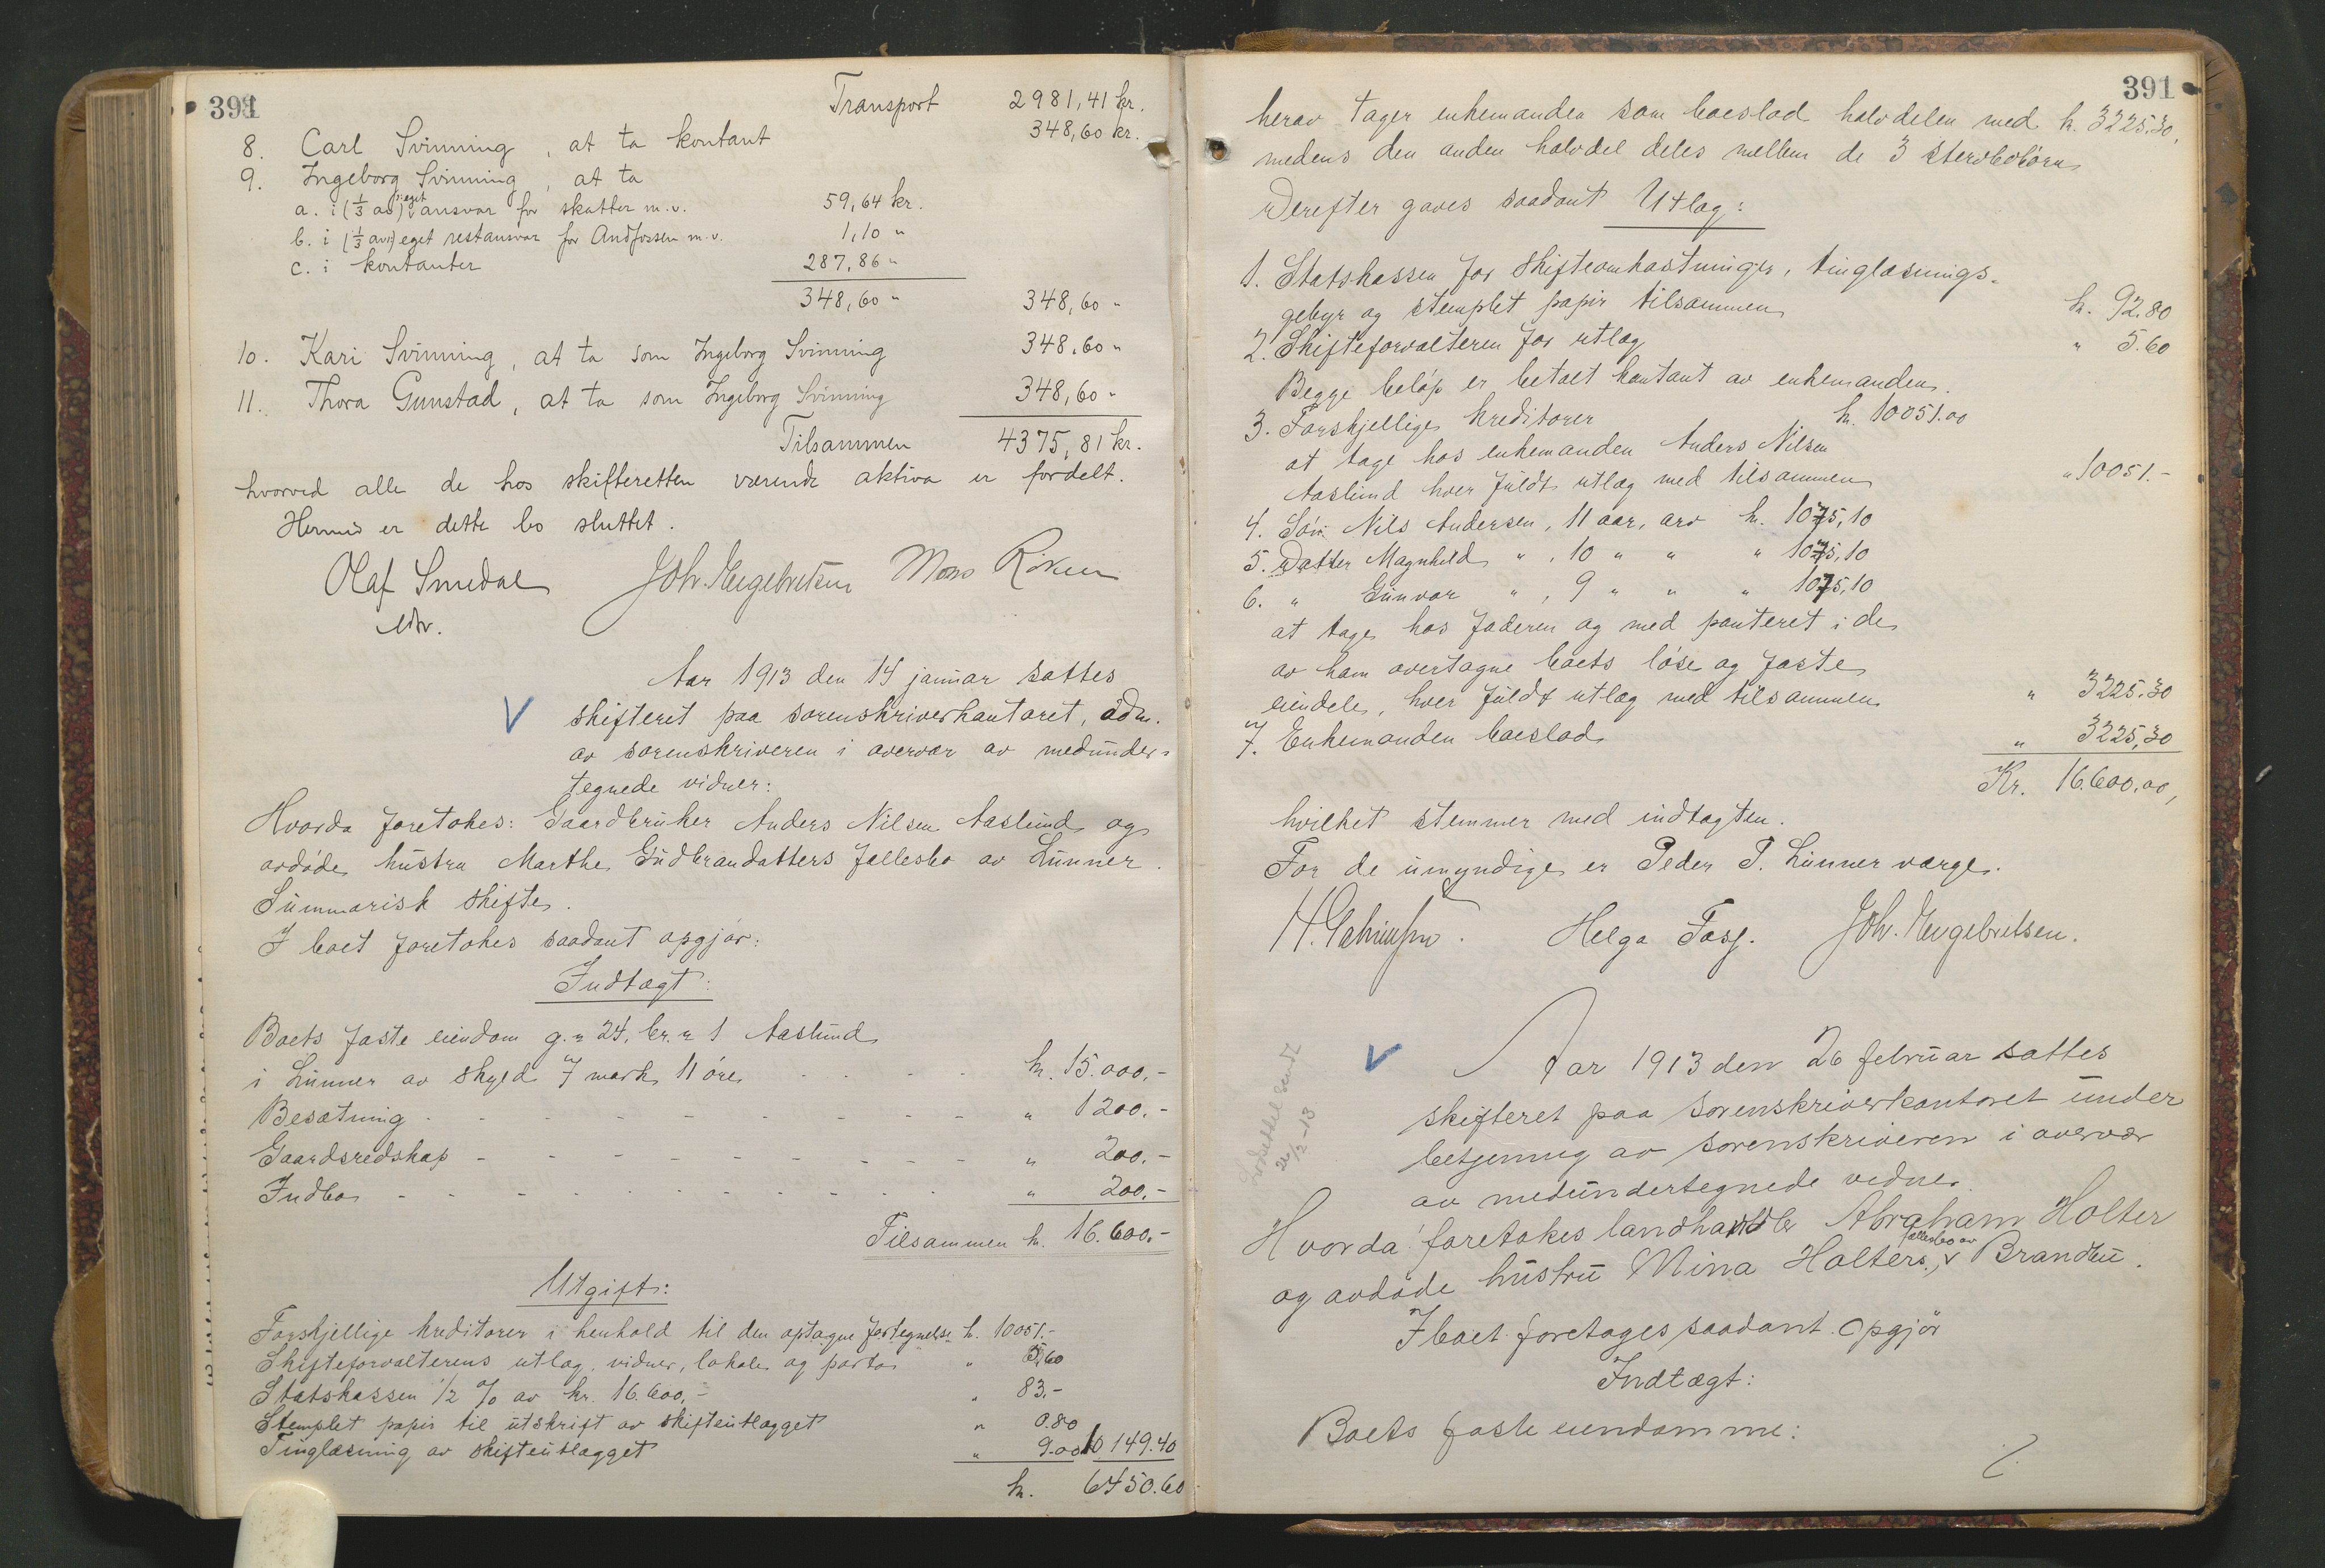 391
Transport 2981,41 kr.
8. Carl Svinning, at ta kontant 348,60 kr.
9. Ingeborg Svinning, at ta
a. i (1/3 av) eget ansvar for skatter m.v. 59,64 kr.
b. i (1/3 av) eget restansvar for Andfossen m.v. 1,10 "
c. i kontanter 287,86 "
348,60 " 348,60 "
10. Kari Svinning, at ta som Ingeborg Svinning 348,60 "
11. Thora Gunstad, at ta som Ingeborg Svinning 348,60 "
Tilsammen 4375,81 kr.
hvorved alle de hos skifteretten værende aktiva er fordelt.
Hermed er dette bo sluttet.
Olaf Smedal Joh. Engebretsen Mons Röken
Aar 1913 den 14 januar sattes
V skifteret paa sorenskriverkontoret, adm.
av sorenskriveren i overvær av medunder-
tegnede vidner:
Hvorda foretokes: Gaardbruker Anders Nilsen Aaslund og
avdøde hustru Marthe Gudbrandatters fællesbo av Lunner.
Summarisk skifte.
I boet foretokes saadant opgjør:
Indtægt:
Boets faste eiendom g. n 24, br. n 1 Aaslund
i Lunner av skyld 7 mark 11 øre - - - - kr. 15.000.-
Besætning - - - - - - - - - - " 1200.-
Gaardsredskap - - - - - - - - - " 200.-
Indbo - - - - - - - - - - " 200.-
Tilsammen kr. 16.600.-
Utgift:
Forskjellige kreditorer i henhold til den optagne fortegnelse kr. 10051.-
Skifteforvalterens utlæg, vidner, lokale og porto " 5,60
Statskassen 1/2 % av kr. 16.600,- " 83.-
Stemplet papir til utskrift av skifteutlægget " 0.80
Tinglæsning av skifteutlægget " 9.00 10.149.40
kr. 6450.60
391
herav tager enkemanden som boeslod halvdelen med kr. 3225.30,
medens den anden halvdel deles mellem de 3 stervbobörn
Derefter gaves saadant Utlæg:
1. Statskassen for skifteomkostninger, tinglæsnings-
gebyr og stemplet papir tilsammen kr. 92.80
2. Skifteforvalteren for utlæg " 5.60
Begge beløp er betalt kontant av enkemanden.
3. Forskjellige kreditorer kr. 10051.00
at tage hos enkemanden Anders Nilsen
Aaslund hver fuldt utlæg med tilsammen " 10051.-
4. Søn Nils Andersen, 11 aar, arv kr. 1075,10
5. Datter Magnhild " , 10 " " " 1075,10
6. " Gunvor " , 9 " " " 1075,10
at tage hos faderen og med panteret i de
av ham overtagne boets løse og faste
eiendele, hver fuldt utlæg med tilsammen " 3225.30
7. Enkemanden boeslod " 3225,30
Kr. 16.600.00,
hvilket stemmer med indtægten.
For de umyndige er Peder P. Lunner værge.
Helga Fasj. Joh. Engebretsen.
V Aar 1913 den 26 februar sattes
skifteret paa sorenskriverkontoret under
betjening av sorenskriveren i overvær
av medundertegnede vidner.
26/2-13
Hvorda foretokes landhandler Abraham Holter
fællesbo av
og avdøde hustru Mina Holters, v Brandbu.
I boet foretages saadant Opgjör
Indtægt:
Boets faste eiendomme: